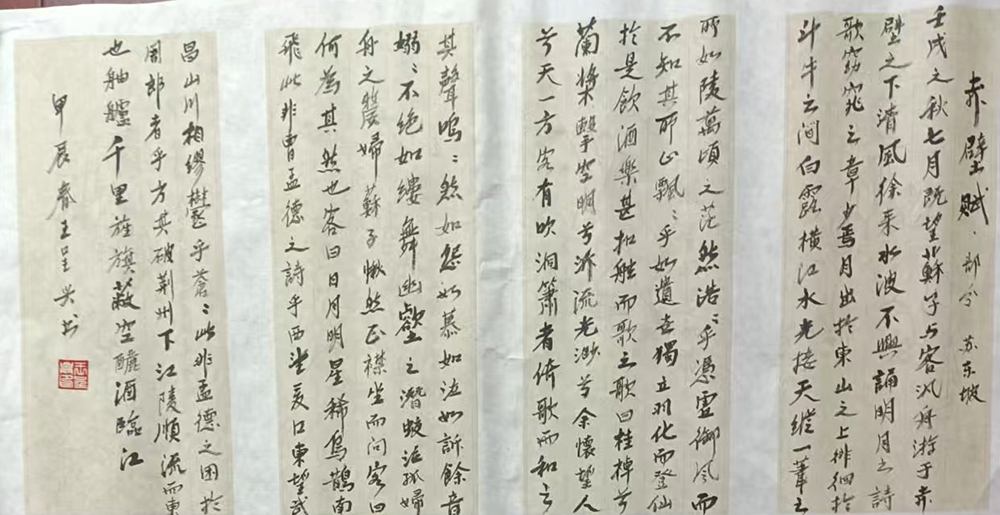 赤壁赋·部分 苏东坡
壬戌之秋七月既望蘇子与客汎舟游于赤
壁之下清風徐来水波不興誦明月之詩
歌窈窕之章少焉月出於東山之上徘徊於
斗牛之间白露横江水光接天縱一葦之
所如陵萬頃之茫然浩〻乎憑虚御风而
不知其所止飄〻乎如遺世獨立羽化而登仙
於是飲酒樂甚扣舷而歌之歌曰桂棹兮
蘭槳擊空明兮泝流光渺兮余懷望人
兮天一方客有吹洞簫者倚歌而和之
其聲嗚〻然如怨如慕如泣如訴餘音
嫋〻不绝如缕舞幽壑之潛蛟泣孤婦
舟之嫠婦蘇子愀然正襟坐而问客曰
何為其然也客曰日月明星稀烏鵲南
飛此非曹孟德之詩乎西望夏口東望武
昌山川相繆欝乎蒼〻此非孟德之困於
周郎者乎方其破荆州下江陵順流而東
也舳艫千里旌旗蔽空釃酒臨江
甲辰春王呈兴书